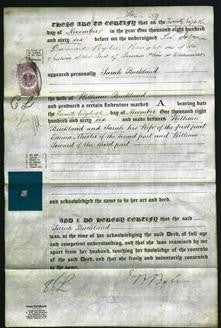 THESE ARE TO CERTIFY that on the Twenty eighth
day of November in the year One thousand eight
hundred and sixty six before me the undersigned Sir John
Barnard Byles Knight one of the
Justices of the Court of Common Pleas at Westminster
appeared personally Sarah Buckland
the wife of William Buckland
and produced a certain Indenture marked A bearing date
the twenty eighth day of November One thousand eight
hundred and sixty six and made between William
Buckland and Sarah his Wife of the first part
of the second part and William
of the third part
and acknowledged the same to be her act and deed.
AND I DO HEREBY CERTIFY that the said
Sarah Buckland
was, at the time of her acknowledging the said Deed, of full age
and competent understanding, and that she was examined by me
apart from her husband, touching her knowledge of the contents
of the said Deed, and that she freely and voluntarily consented
to the same.